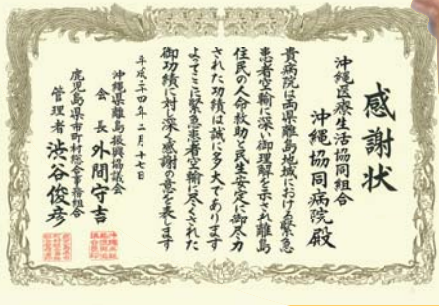 感謝状
沖縄医療生活協同組合
沖縄協同病院殿
貴病院は両県離島地域における緊急
患者空輸に深い御理解を示され離島
住民の人命救助と民生安定に御尽力
された功績は誠に多大であります
よってここに緊急患者空輸に尽くされた
御功績に対し深く感謝の意を表します
平成二四年二月十七日
沖縄県離島振興協議会
会長 外間守吉
鹿児島県市町村総合事務組合
管理者 渋谷俊彦